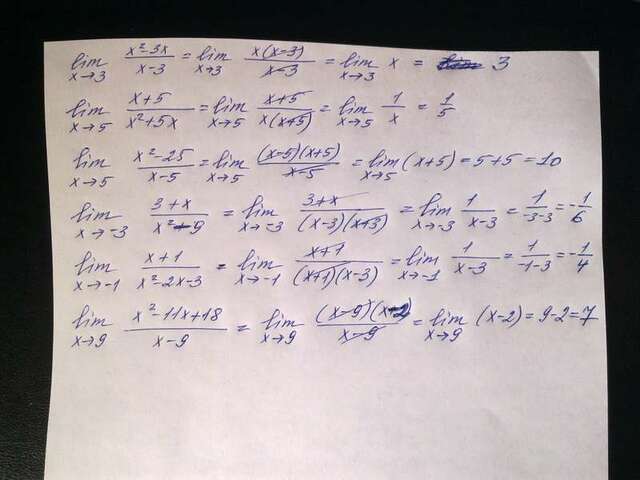 lim x→3 (x²-3x)/(x-3) = lim x→3 x(x-3)/(x-3) = lim x→3 x = 3
lim x→5 (x+5)/(x²+5x) = lim x→5 (x+5)/(x(x+5)) = lim x→5 1/x = 1/5
lim x→5 (x²-25)/(x-5) = lim x→5 (x-5)(x+5)/(x-5) = lim x→5 (x+5) = 5+5 = 10
lim x→-3 (3+x)/(x²-9) = lim x→-3 (3+x)/((x-3)(x+3)) = lim x→-3 1/(x-3) = 1/(-3-3) = -1/6
lim x→-1 (x+1)/(x²-2x-3) = lim x→-1 (x+1)/((x+1)(x-3)) = lim x→-1 1/(x-3) = 1/(-1-3) = -1/4
lim x→9 (x²-11x+18)/(x-9) = lim x→9 (x-9)(x-2)/(x-9) = lim x→9 (x-2) = 9-2 = 7